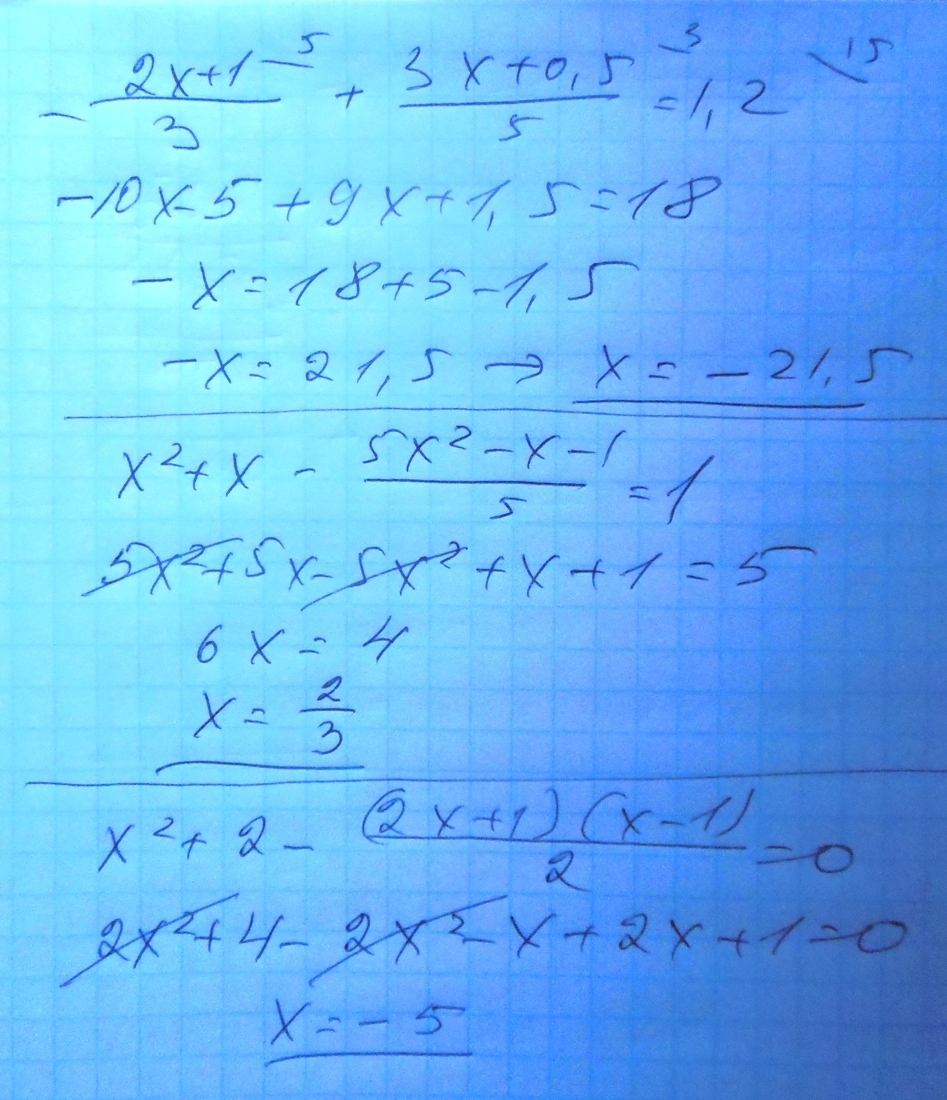 - (2x+1)/3 \5 + (3x+0,5)/5 \3 = 1,2 \15
-10x-5+9x+1,5=18
-x=18+5-1,5
-x=21,5 → x=-21,5
x²+x - (5x²-x-1)/5 = 1
5x²+5x-5x²+x+1=5
6x=4
x=2/3
x²+2- (2x+1)(x-1)/2 =0
2x²+4-2x²-x+2x+1=0
x=-5